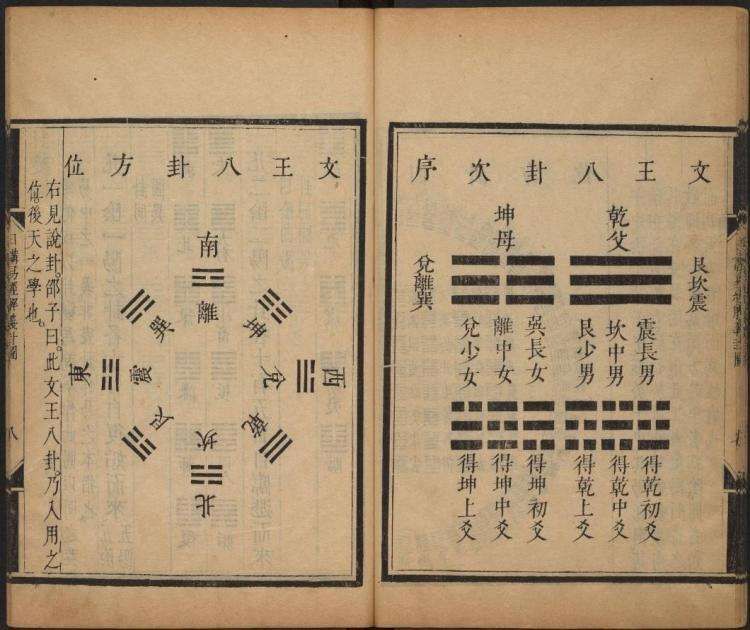 文王八卦次序
艮坎震
乾父
坤母
兌離巽
震長男
坎中男
艮少男
巽長女
離中女
兌少女
得乾初爻
得乾中爻
得乾上爻
得坤初爻
得坤中爻
得坤上爻
文王八卦方位
南
離
坤
兌
西
乾
坎
北
艮
震
東
巽
右見說卦。邵子曰。此文王八卦。乃入用之
位。後天之學也。
八